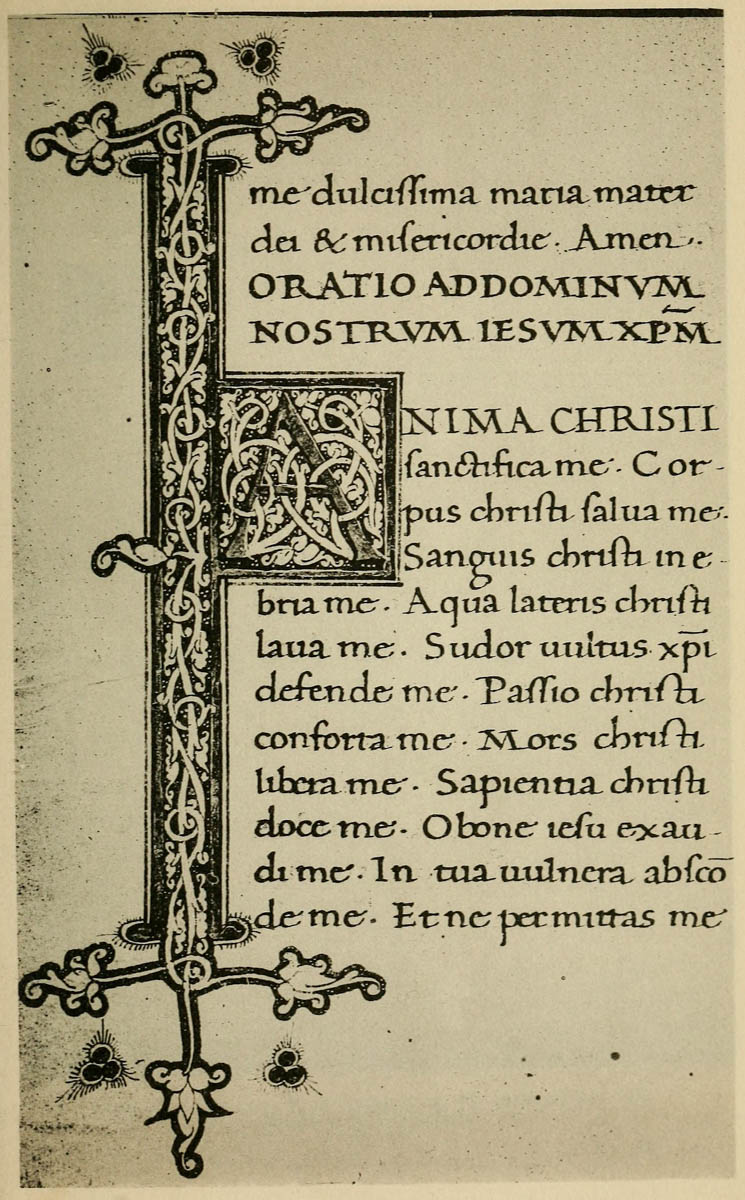 me dulcissima maria mater
dei & misericordie. Amen.
ORATIO AD DOMINVM
NOSTRVM IESVM XP̄M
ANIMA CHRISTI
sanctifica me. Cor-
pus christi salua me.
Sanguis christi ine-
bria me. Aqua lateris christi
laua me. Sudor uultus xp̄i
defende me. Passio christi
conforta me. Mors christi
libera me. Sapientia christi
doce me. O bone iesu exau-
di me. In tua uulnera abscō
de me. Et ne permittas me